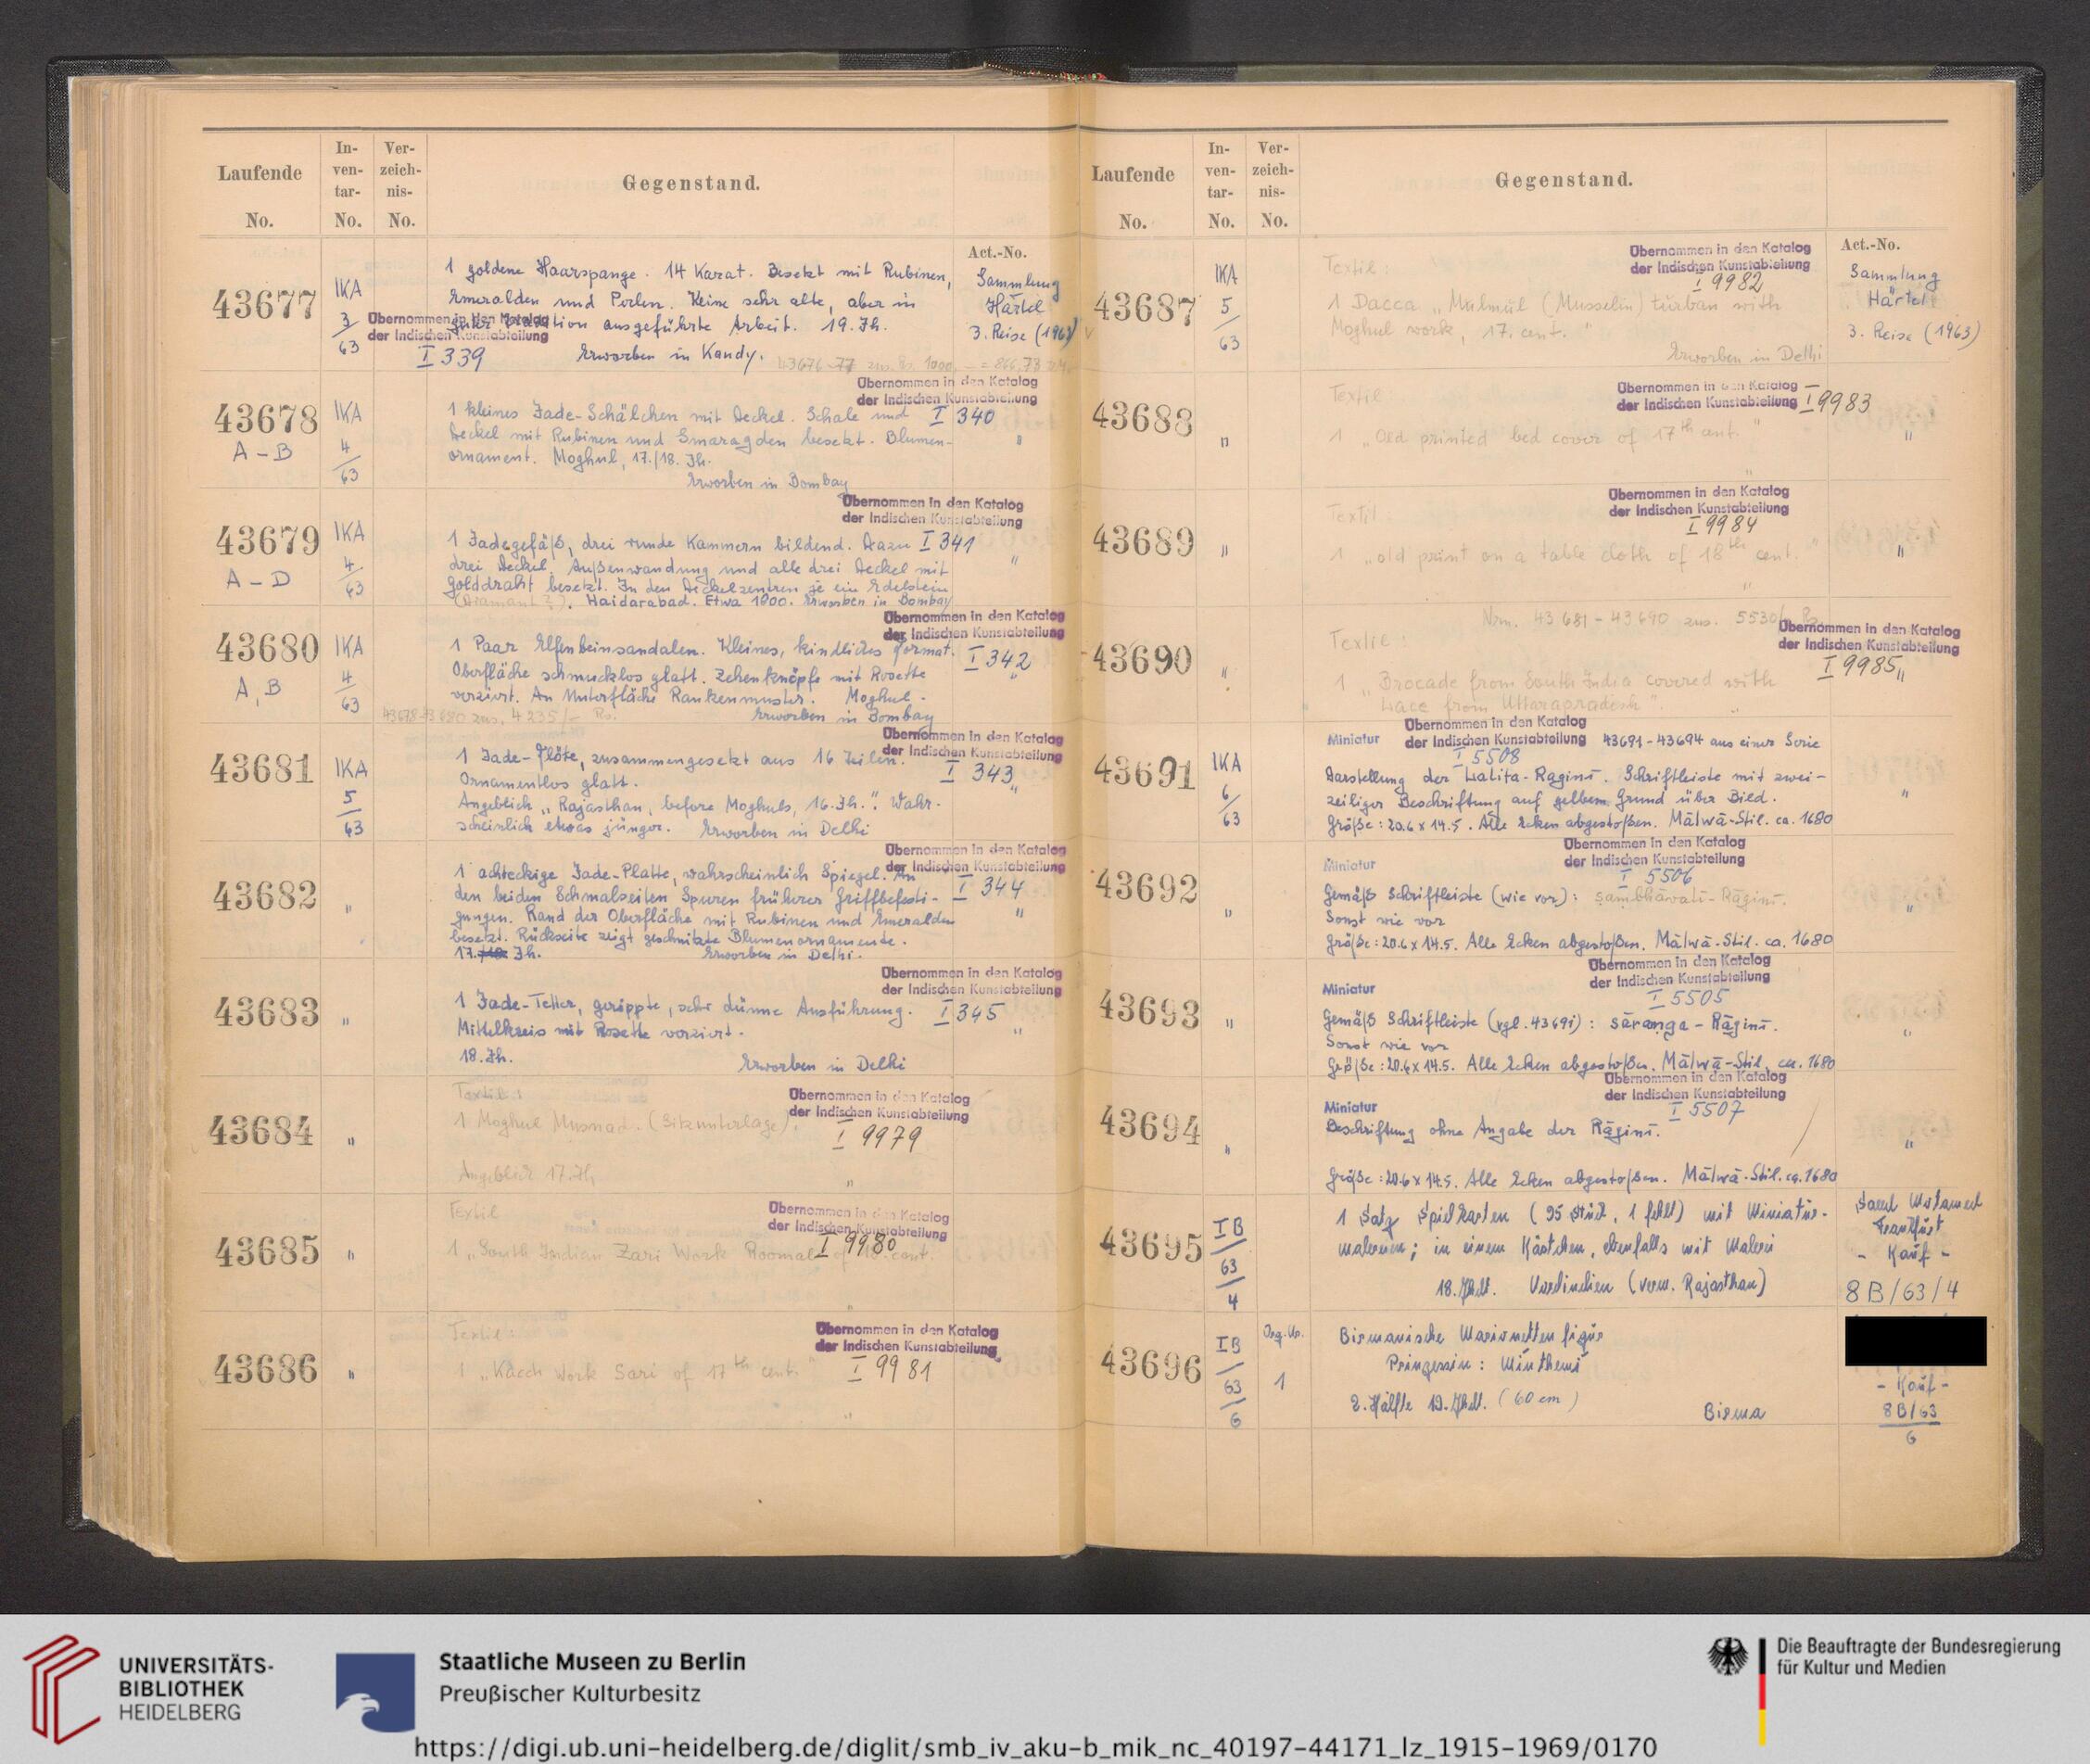 Laufende
No.
In-
ven-
tar-
No.
Ver-
zeich-
nis-
No.
Gegenstand.
Act.-No.
43677
IKA
3/63
1 goldene Haarspange. 14 Karat. Besetzt mit Rubinen,
Emeralden und Perlen. Keine sehr alte, aber in
guter Tradition ausgeführte Arbeit. 19. Jh.
Erworben in Kandy.
Übernommen in den Katalog
der Indischen Kunstabteilung
I 339
43676-77 zus. Rs. 1000,
Sammlung
Härtel
3. Reise (1963)
43678
A - B
IKA
4/63
Übernommen in den Katalog
der Indischen Kunstabteilung
I 340
1 kleines Jade-Schälchen mit Deckel. Schale und
Deckel mit Rubinen und Smaragden besetzt. Blumen-
ornament. Moghul, 17./18. Jh.
Erworben in Bombay
"
43679
A - D
IKA
4/63
Übernommen in den Katalog
der Indischen Kunstabteilung
I 341
1 Jadegefäß, drei runde Kammern bildend. Dazu
drei Deckel. Außenwandung und alle drei Deckel mit
Golddraht besetzt. In den Deckelzentren je ein Edelstein
(Diamant?). Haidarabad. Etwa 1800. Erworben in Bombay
"
43680
A, B
IKA
4/63
Übernommen in den Katalog
der Indischen Kunstabteilung
I 342
1 Paar Elfenbeinsandalen. Kleines, kindliches Format.
Oberfläche schmucklos glatt. Zehenknöpfe mit Rosette
verziert. An Unterfläche Rankenmuster. Moghul.
Erworben in Bombay
43678-43680 zus. 4235/- Rs.
"
43681
IKA
5/63
Übernommen in den Katalog
der Indischen Kunstabteilung
I 343
1 Jade-Flöte, zusammengesetzt aus 16 Teilen.
Ornamentlos glatt.
Angeblich „Rajasthan, before Moghuls, 16. Jh.". Wahr-
scheinlich etwas jünger. Erworben in Delhi
"
43682
"
Übernommen in den Katalog
der Indischen Kunstabteilung
I 344
1 achteckige Jade-Platte, wahrscheinlich Spiegel. An
den beiden Schmalseiten Spuren früherer Griffbefesti-
gungen. Rand der Oberfläche mit Rubinen und Emeralden
besetzt. Rückseite zeigt geschnitzte Blumenornamente.
17. Jh. Erworben in Delhi.
"
43683
"
Übernommen in den Katalog
der Indischen Kunstabteilung
I 345
1 Jade-Teller, gerippte, sehr dünne Ausführung.
Mittelkreis mit Rosette verziert.
18. Jh. Erworben in Delhi
"
43684
"
Textil:
Übernommen in den Katalog
der Indischen Kunstabteilung
I 9979
1 Moghul Musnad. (Sitzunterlage).
Angeblich 17. Jh
"
43685
"
Textil
Übernommen in den Katalog
der Indischen Kunstabteilung
I 9980
1 „South Indian Zari Work Roomal of 18. cent.
"
43686
"
Textil:
Übernommen in den Katalog
der Indischen Kunstabteilung
I 9981
1 „Kacch work Sari of 17th cent."
"
Laufende
No.
In-
ven-
tar-
No.
Ver-
zeich-
nis-
No.
Gegenstand.
Act.-No.
43687
IKA
5/63
Textil:
Übernommen in den Katalog
der Indischen Kunstabteilung
I 9982
1 Dacca „Mulmul (Musselin) turban with
Moghul work, 17. cent."
Erworben in Delhi
Sammlung
Härtel
3. Reise (1963)
43688
"
Textil
Übernommen in den Katalog
der Indischen Kunstabteilung
I 9983
1 „Old printed bed cover of 17th cent."
"
43689
"
Textil
Übernommen in den Katalog
der Indischen Kunstabteilung
I 9984
1 „old print on a table cloth of 18th cent."
"
43690
"
Nrn. 43681-43690 zus. 5530/- Rs
Textil:
Übernommen in den Katalog
der Indischen Kunstabteilung
I 9985
1 „Brocade from South India covered with
Lace from Uttarapradesh".
"
43691
IKA
6/63
Miniatur
Übernommen in den Katalog
der Indischen Kunstabteilung
I 5508
43691-43694 aus einer Serie
Darstellung der Lalita-Ragini. Schriftleiste mit zwei-
zeiliger Beschriftung auf gelbem Grund über Bild.
Größe: 20.6 x 14.5. Alle Ecken abgestoßen. Mālwā-Stil. ca. 1680
"
43692
"
Miniatur
Übernommen in den Katalog
der Indischen Kunstabteilung
I 5506
Gemäß Schriftleiste (wie vor): Sambhāvatī-Rāginī.
Sonst wie vor
Größe: 20.6 x 14.5. Alle Ecken abgestoßen. Mālwā-Stil. ca. 1680
"
43693
"
Miniatur
Übernommen in den Katalog
der Indischen Kunstabteilung
I 5505
Gemäß Schriftleiste (vgl. 43691): sāranga-Rāginī.
Sonst wie vor
Größe: 20.6 x 14.5. Alle Ecken abgestoßen. Mālwā-Stil, ca. 1680
"
43694
"
Miniatur
Übernommen in den Katalog
der Indischen Kunstabteilung
I 5507
Beschriftung ohne Angabe der Rāginī.
Größe: 20.6 x 14.5. Alle Ecken abgestoßen. Mālwā-Stil. ca. 1680
"
43695
IB/63/4
1 Satz Spielkarten (95 Stück, 1 fehlt) mit Miniatur-
malereien; in einem Kästchen, ebenfalls mit Malerei
18. Jhdt. Nordindien (verm. Rajasthan)
Frankfurt
- Kauf -
8B/63/4
43696
IB/63/6
1
Birmanische Marionettenfigur
Prinzessin: Minthemi
2. Hälfte 19. Jhdt. (60 cm)
Birma
- Kauf -
8B/63
6
UNIVERSITÄTS-
BIBLIOTHEK
HEIDELBERG
Staatliche Museen zu Berlin
Preußischer Kulturbesitz
Die Beauftragte der Bundesregierung
für Kultur und Medien
https://digi.ub.uni-heidelberg.de/diglit/smb_iv_aku-b_mik_nc_40197-44171_lz_1915-1969/0170